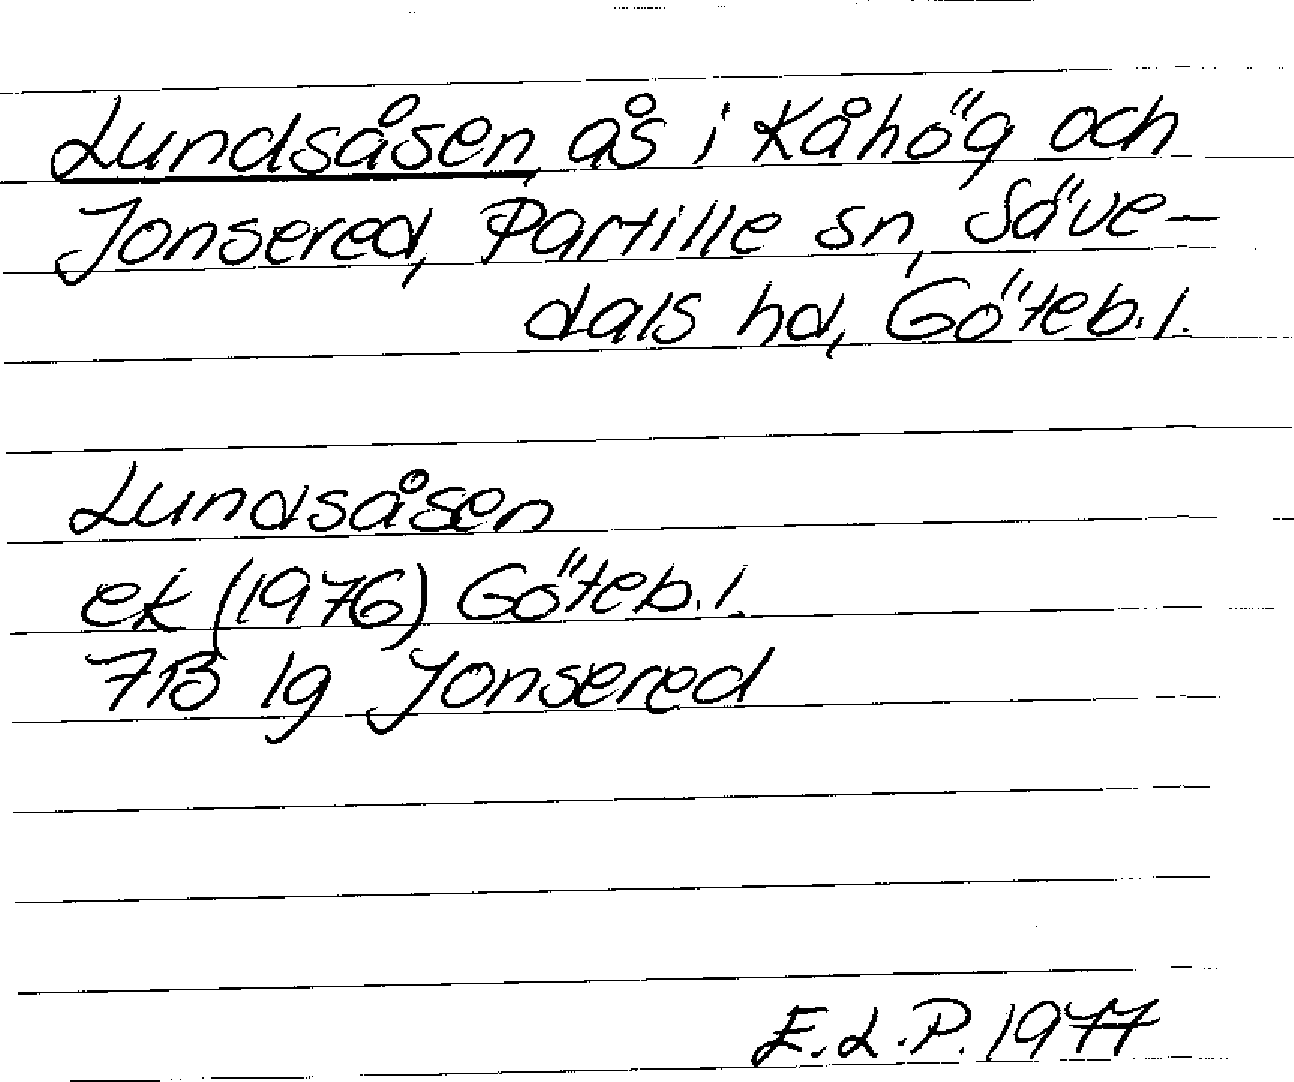 Lundsåsen, ås i Kåhög och
Jonsered, Partille sn, Säve-
dals hd, Göteb. l.
Lundsåsen
ek (1976) Göteb. l.
7B 1g Jonsered
E.L.P. 1977